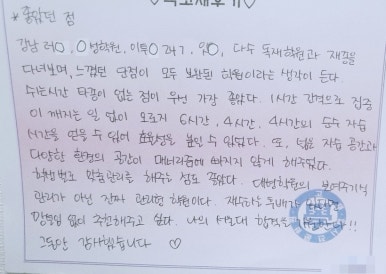 * 좋았던 점
강남 러○, ○성학원, 이투○ 247, 잇○, 다수 독재학원과 재종을
다녀보며, 느꼈던 단점이 모두 보완된 학원이라는 생각이 든다.
쉬는시간 타종이 없는 점이 우선 가장 좋았다. 1시간 간격으로 집중
이 깨지는 일 없이 오로지 6시간, 4시간, 4시간의 순수 자습
시간을 얻을 수 있어 효율성을 높일 수 있었다. 또, 넓은 자습 공간과
다양한 환경의 공간이 매너리즘에 빠지지 않게 해주었다.
학생별로 맞춤관리를 해주는 점도 좋았다. 대형학원의 보여주기식
관리가 아닌 진짜 관리형 학원이다. 재도전
망설임 없이 추천해주고 싶다. 나의 서연대 합격을
그동안 감사했습니다 ♡